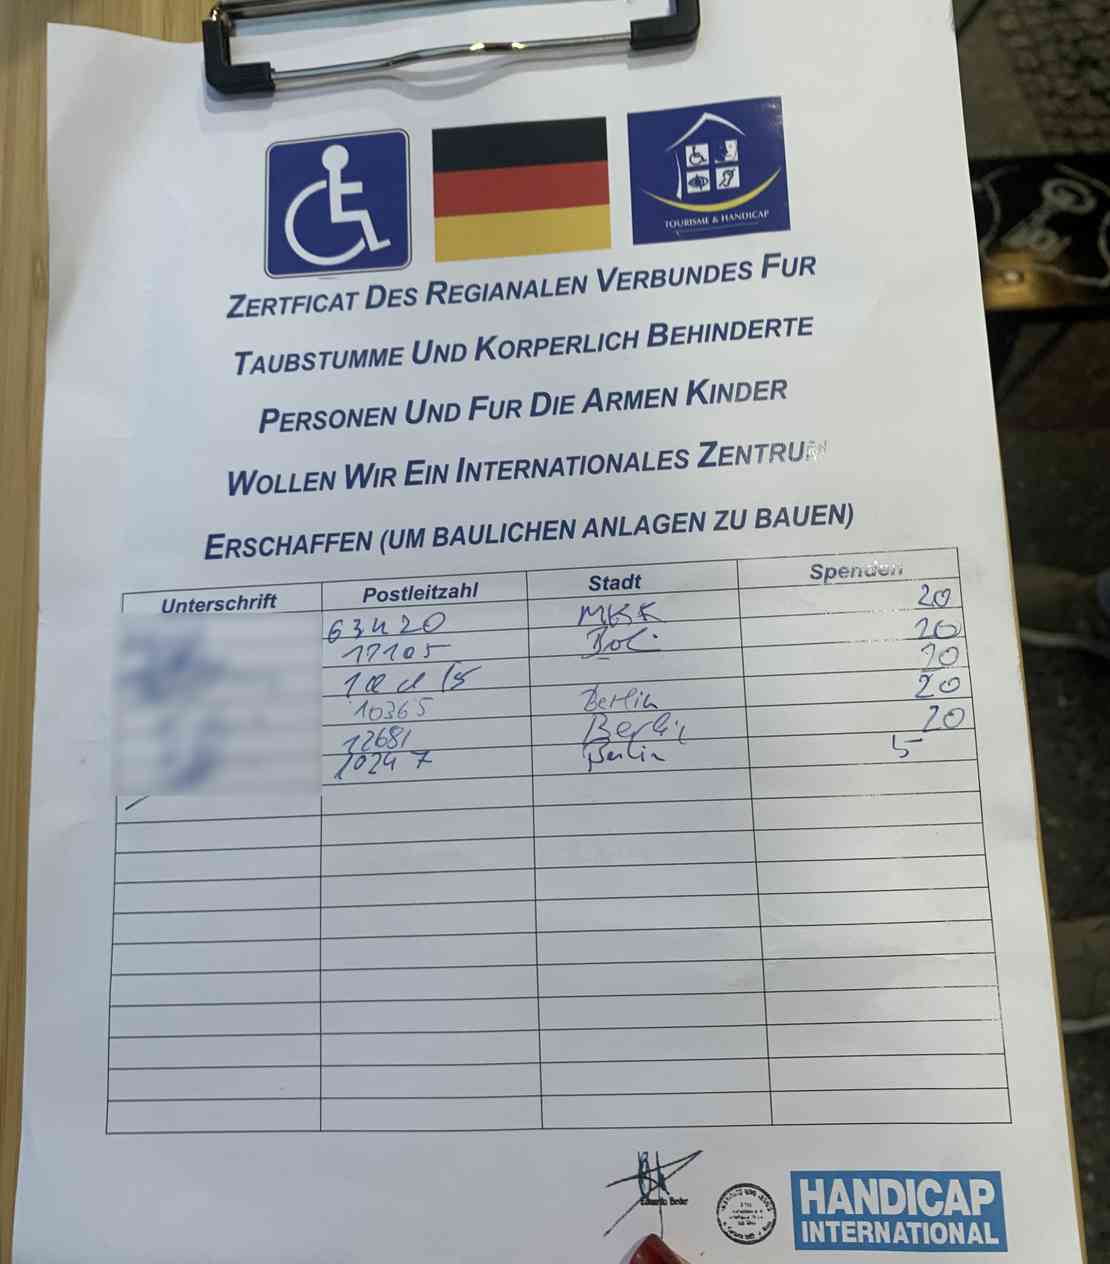 TOURISME & HANDICAP
ZERTFICAT DES REGIANALEN VERBUNDES FUR
TAUBSTUMME UND KORPERLICH BEHINDERTE
PERSONEN UND FUR DIE ARMEN KINDER
WOLLEN WIR EIN INTERNATIONALES ZENTRUM
ERSCHAFFEN (UM BAULICHEN ANLAGEN ZU BAUEN)
Unterschrift Postleitzahl Stadt Spenden
63420 MKK 20
20
20
10365 Berlin 20
12681 Berlin 20
10247 Berlin 5
HANDICAP
INTERNATIONAL